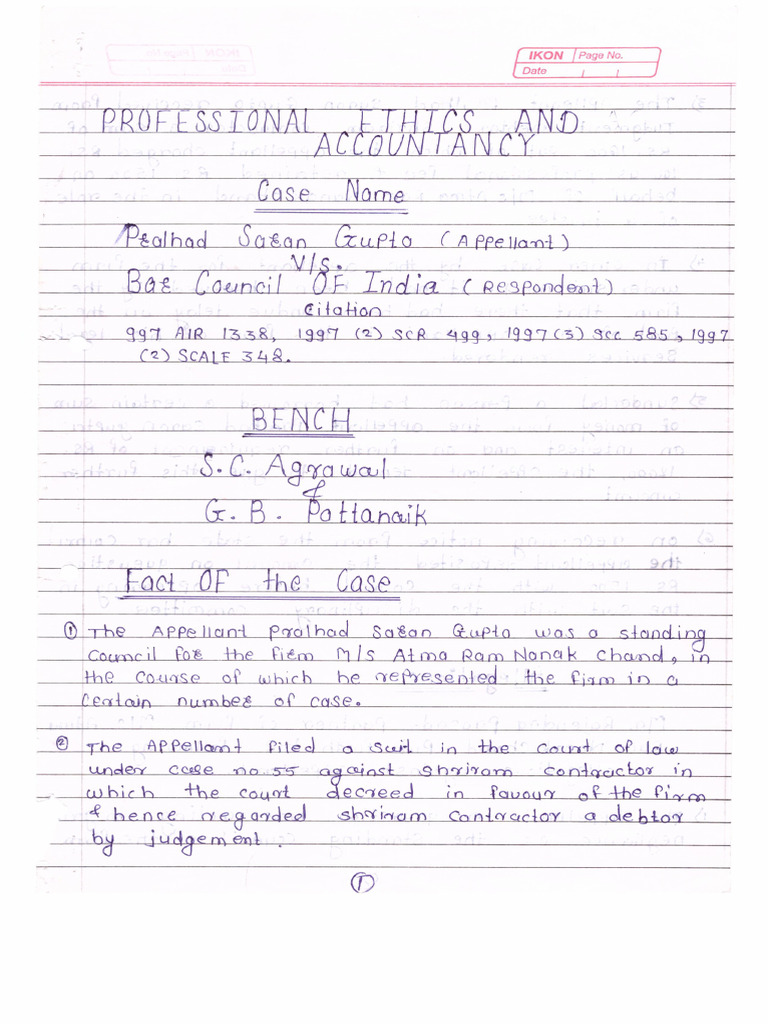 IKON Page No.
Date
PROFESSIONAL ETHICS AND
ACCOUNTANCY
Case Name
Pralhad Saran Gupta (Appellant)
V/s.
Bar Council OF India (Respondent)
Citation
997 AIR 1338, 1997 (2) SCR 499, 1997 (3) SCC 585, 1997
(2) SCALE 348.
BENCH
S.C. Agrawal
&
G. B. Pattanaik
Fact OF the Case
① The Appellant Pralhad Saran Gupta was a standing
Council for the firm M/s Atma Ram Nanak Chand, in
the course of which he represented the firm in a
certain number of case.
② The Appellant filed a suit in the court of law
under case no. 55 against shriram contractor in
which the court decreed in favour of the firm
& hence regarded shriram contractor a debtor
by judgement.
①